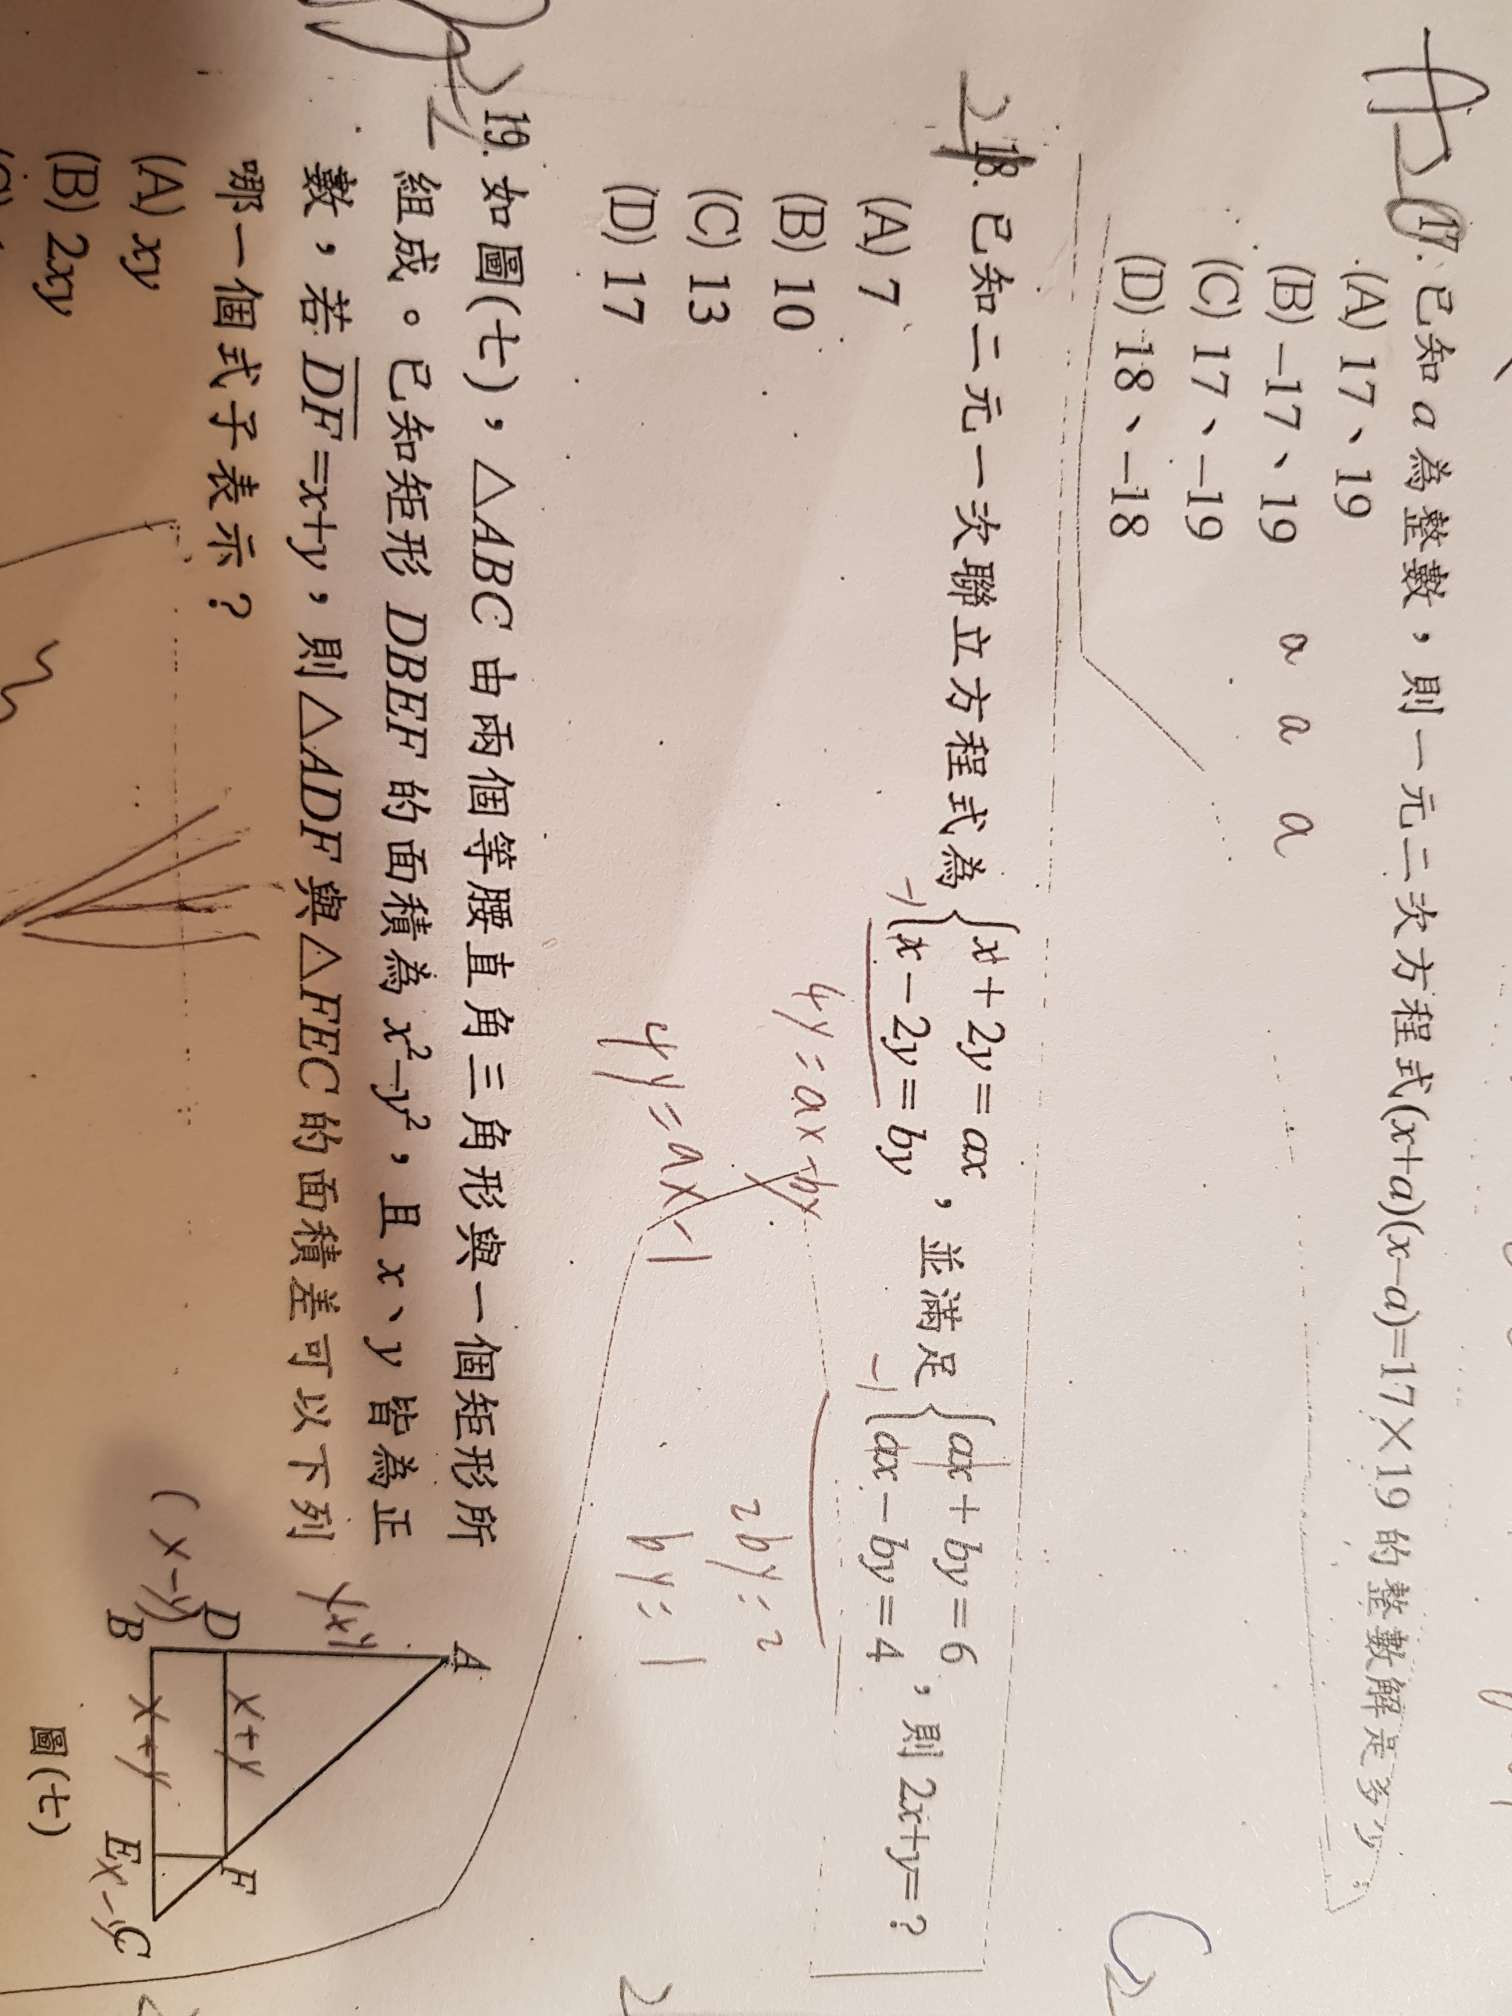 17. 已知 a 為整數，則一元二次方程式(x+a)(x−a)=17×19 的整數解是多少
(A) 17、19
(B) −17、19
(C) 17、−19
(D) 18、−18
a a a
18. 已知二元一次聯立方程式為 { x + 2y = ax
x − 2y = by ，並滿足 { ax + by = 6
ax − by = 4 ，則 2x+y= ?
-1
-1
(A) 7
(B) 10
(C) 13
(D) 17
4y = ax - by
2by = 2
4y = ax - 1
by = 1
19. 如圖(七)，△ABC 由兩個等腰直角三角形與一個矩形所
組成。已知矩形 DBEF 的面積為 x²−y²，且 x、y 皆為正
數，若 DF =x+y，則 △ADF 與 △FEC 的面積差可以下列
哪一個式子表示？
(A) xy
(B) 2xy
A
D
F
B
E
C
x+y
x+y
(x-y)
x-y
圖(七)